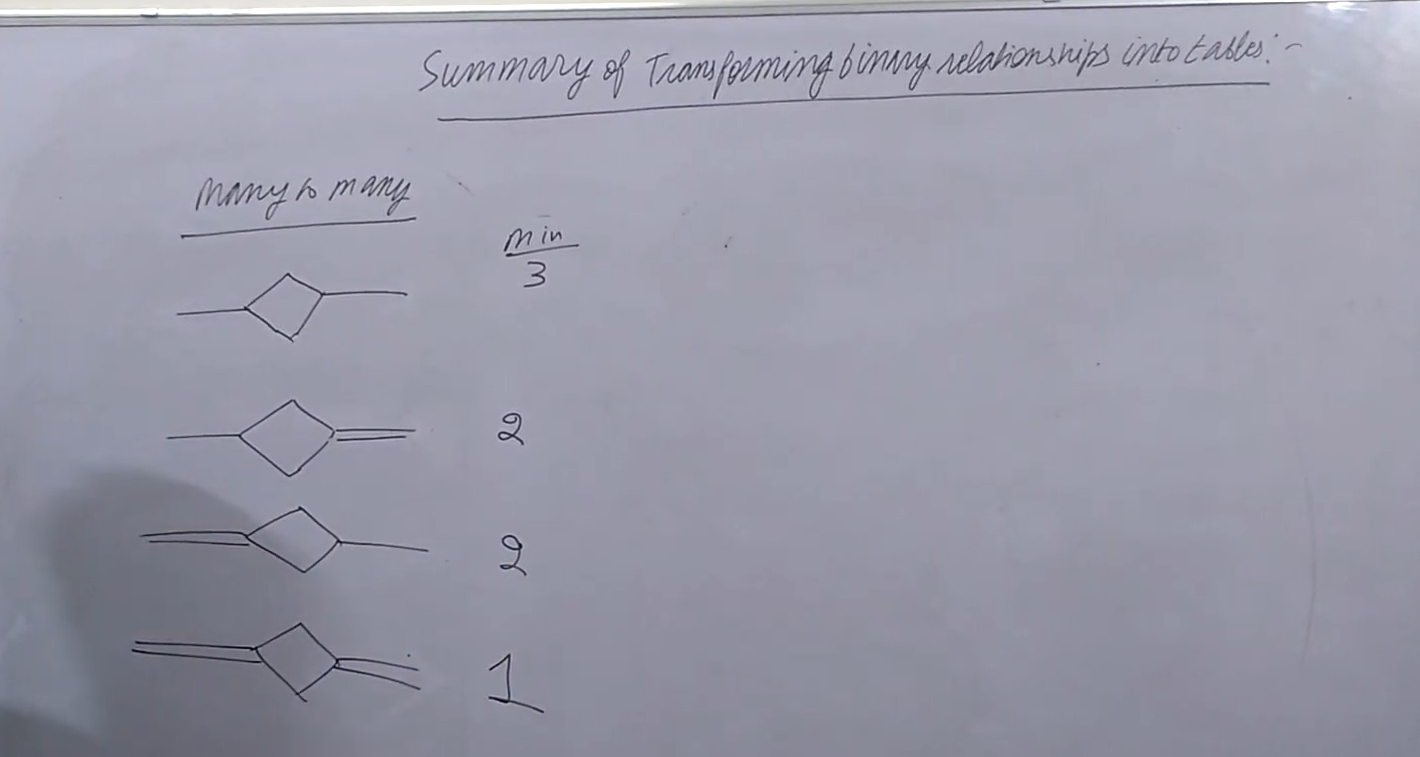 Summary of Transforming binary relationships into tables:-
Many to many
min
3
2
2
1